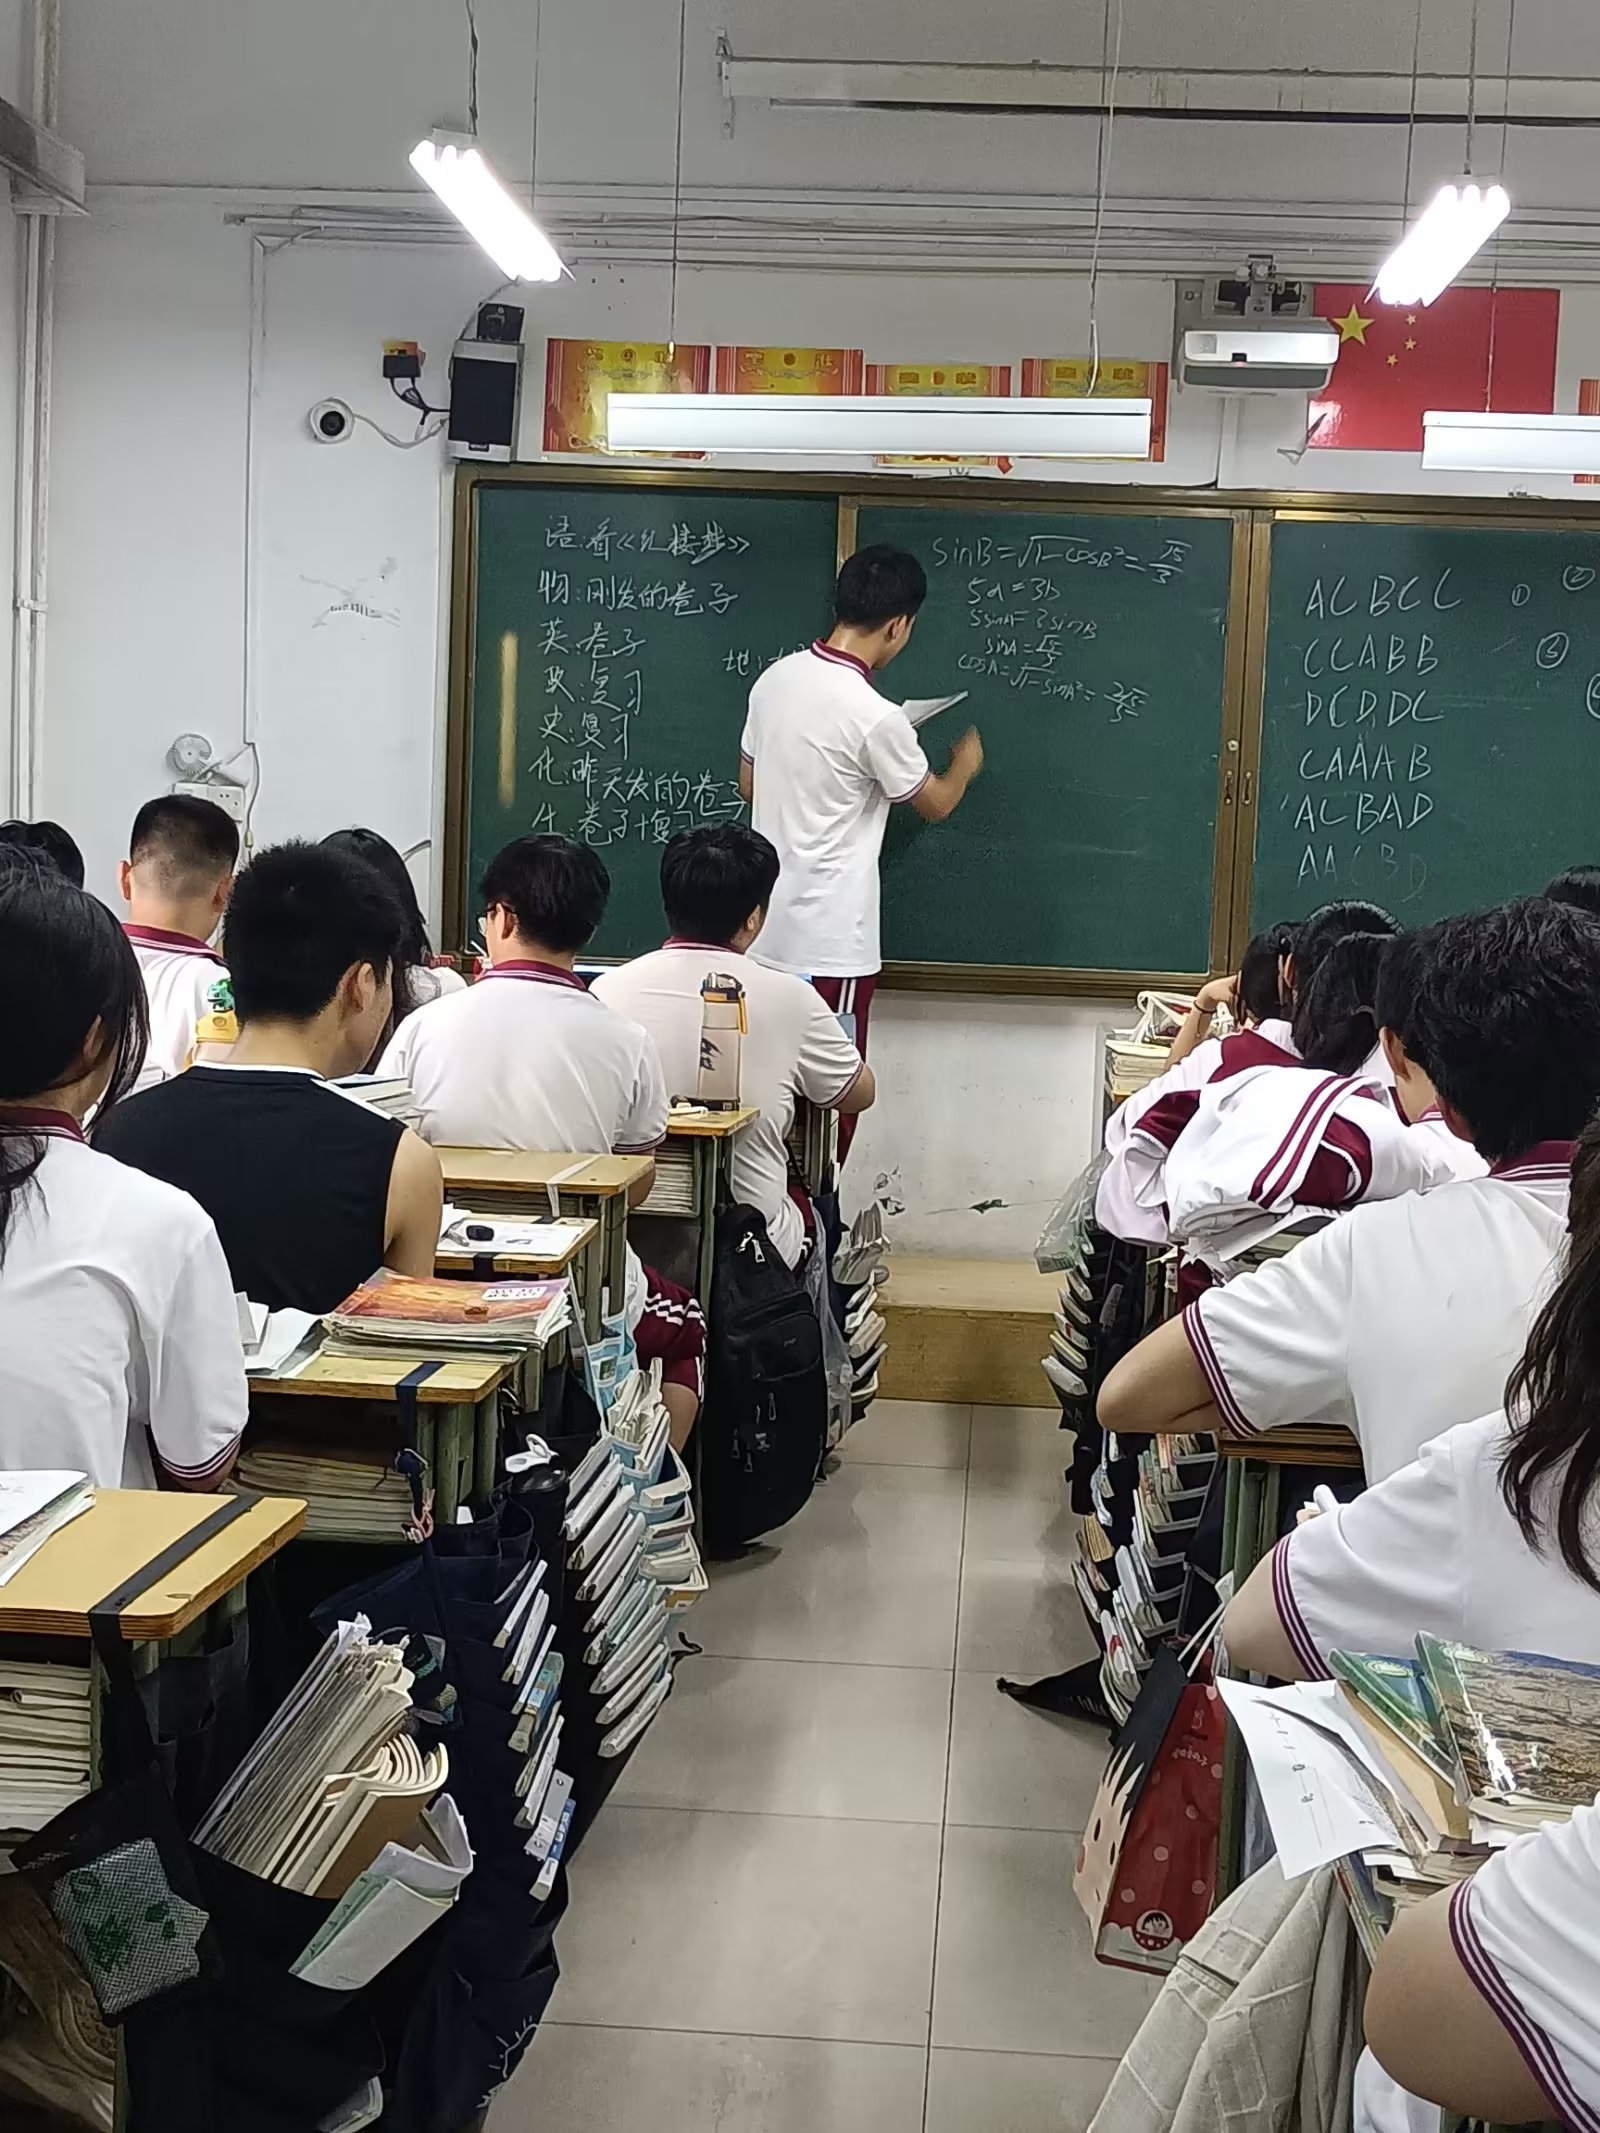 语:看《红楼梦》
物:刚发的卷子
英:卷子
政:复习
地:
史:复习
化:昨天发的卷子
生:卷子+复习
sinB=√1-cosB²=√15/3
5a=3b
5sinA=3sinB
sinA=√15/5
cosA=√1-sinA²=
ACBCC
CCABB
DCDDC
CAAAB
ACBAD
AACBD
①
②
③